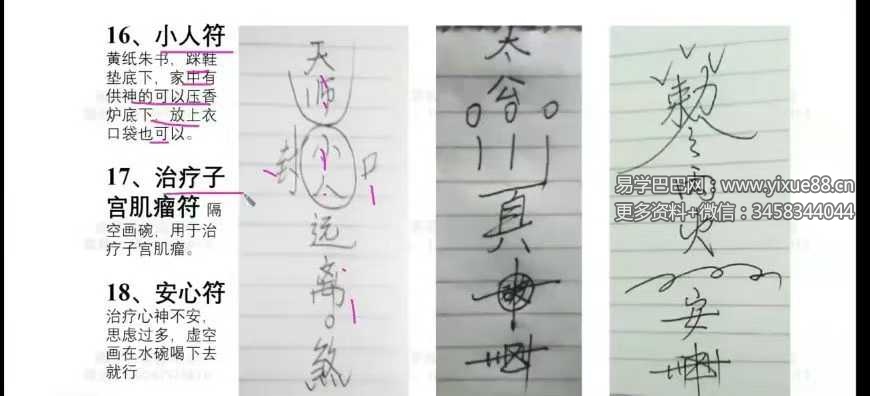 16、小人符
黄纸朱书，踩鞋
垫底下，家中有
供神的可以压香
炉底下，放上衣
口袋也可以。
17、治疗子
宫肌瘤符 隔
空画碗，用于治
疗子宫肌瘤。
18、安心符
治疗心神不安，
思虑过多，虚空
画在水碗喝下去
就行
天
师
封 小人 口
远
离
煞
太
公
真
敕令
雨
火
安
易学巴巴网：www.yixue88.cn
更多资料+微信：3458344044